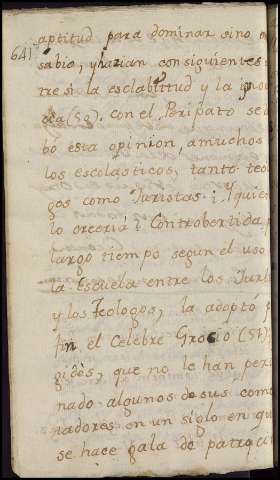 641
aptitud para dominar sino
sabio, y hazian consiguientes
tre si la esclabitud y la
cia (59). Con el Peripato se
bó esta opinion, a muchos
los escolasticos, tanto teo
gos como Juristas: Y quien
lo creeria! Controbertida p
largo tiempo segun el uso
la Escuela entre los Juris
y los Teologos, la adoptó p
fin el Celebre Grocio (57)
gicos, que no le han per
nado algunos de sus com
tadores en un siglo en qu
se hace gala de patroci